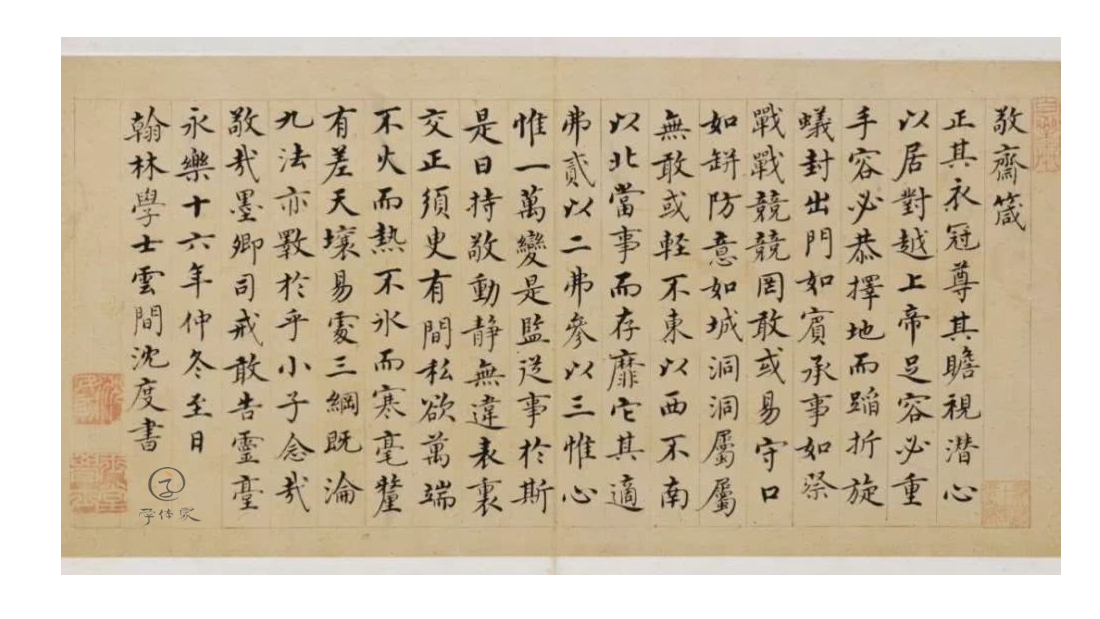 敬齋箴
正其衣冠尊其瞻視潜心
以居對越上帝足容必重
手容必恭擇地而蹈折旋
蟻封出門如賓承事如祭
戰戰競競罔敢或易守口
如缾防意如城洞洞屬屬
無敢或軽不東以西不南
以北當事而存靡它其適
弗貳以二弗參以三惟心
惟一萬變是監從事於斯
是曰持敬動静無違表裏
交正須臾有間私欲萬端
不火而熱不氷而寒毫釐
有差天壤易處三綱既淪
九法亦斁於乎小子念哉
敬哉墨卿司戒敢告靈臺
永樂十六年仲冬至日
翰林學士雲間沈度書
字体家